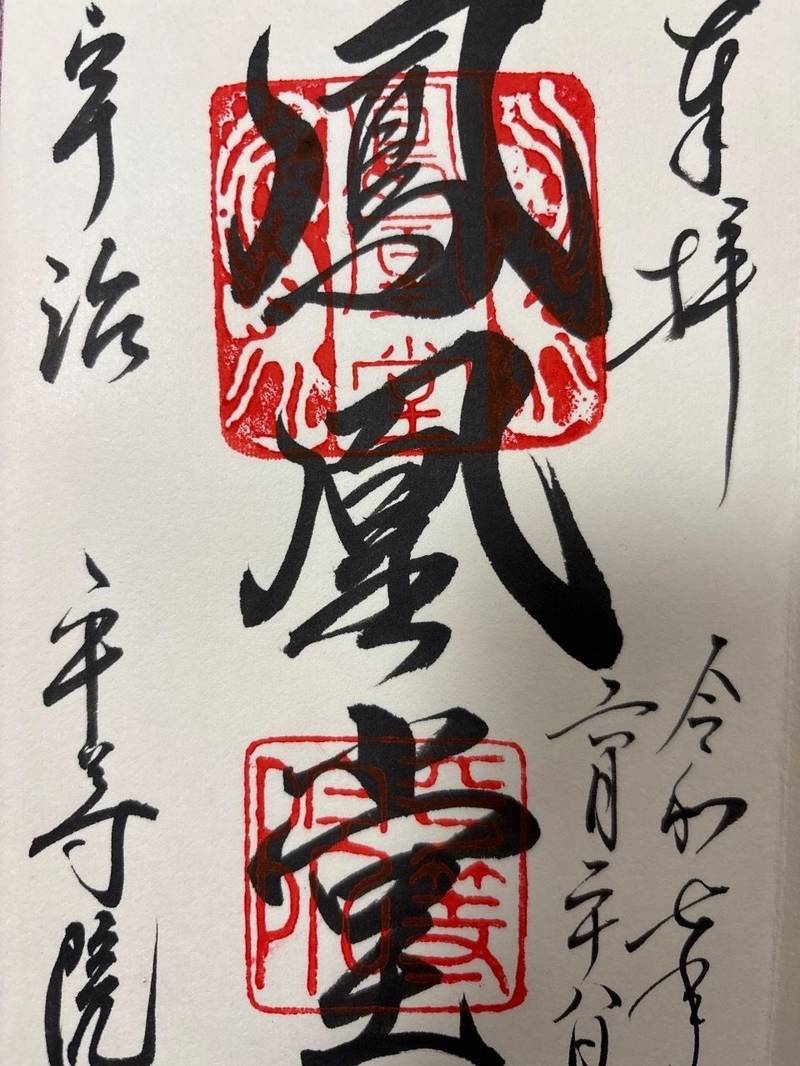 奉拝
令和七年
六月二十八日
鳳凰堂
鳳凰堂
平等院
宇治
平等院